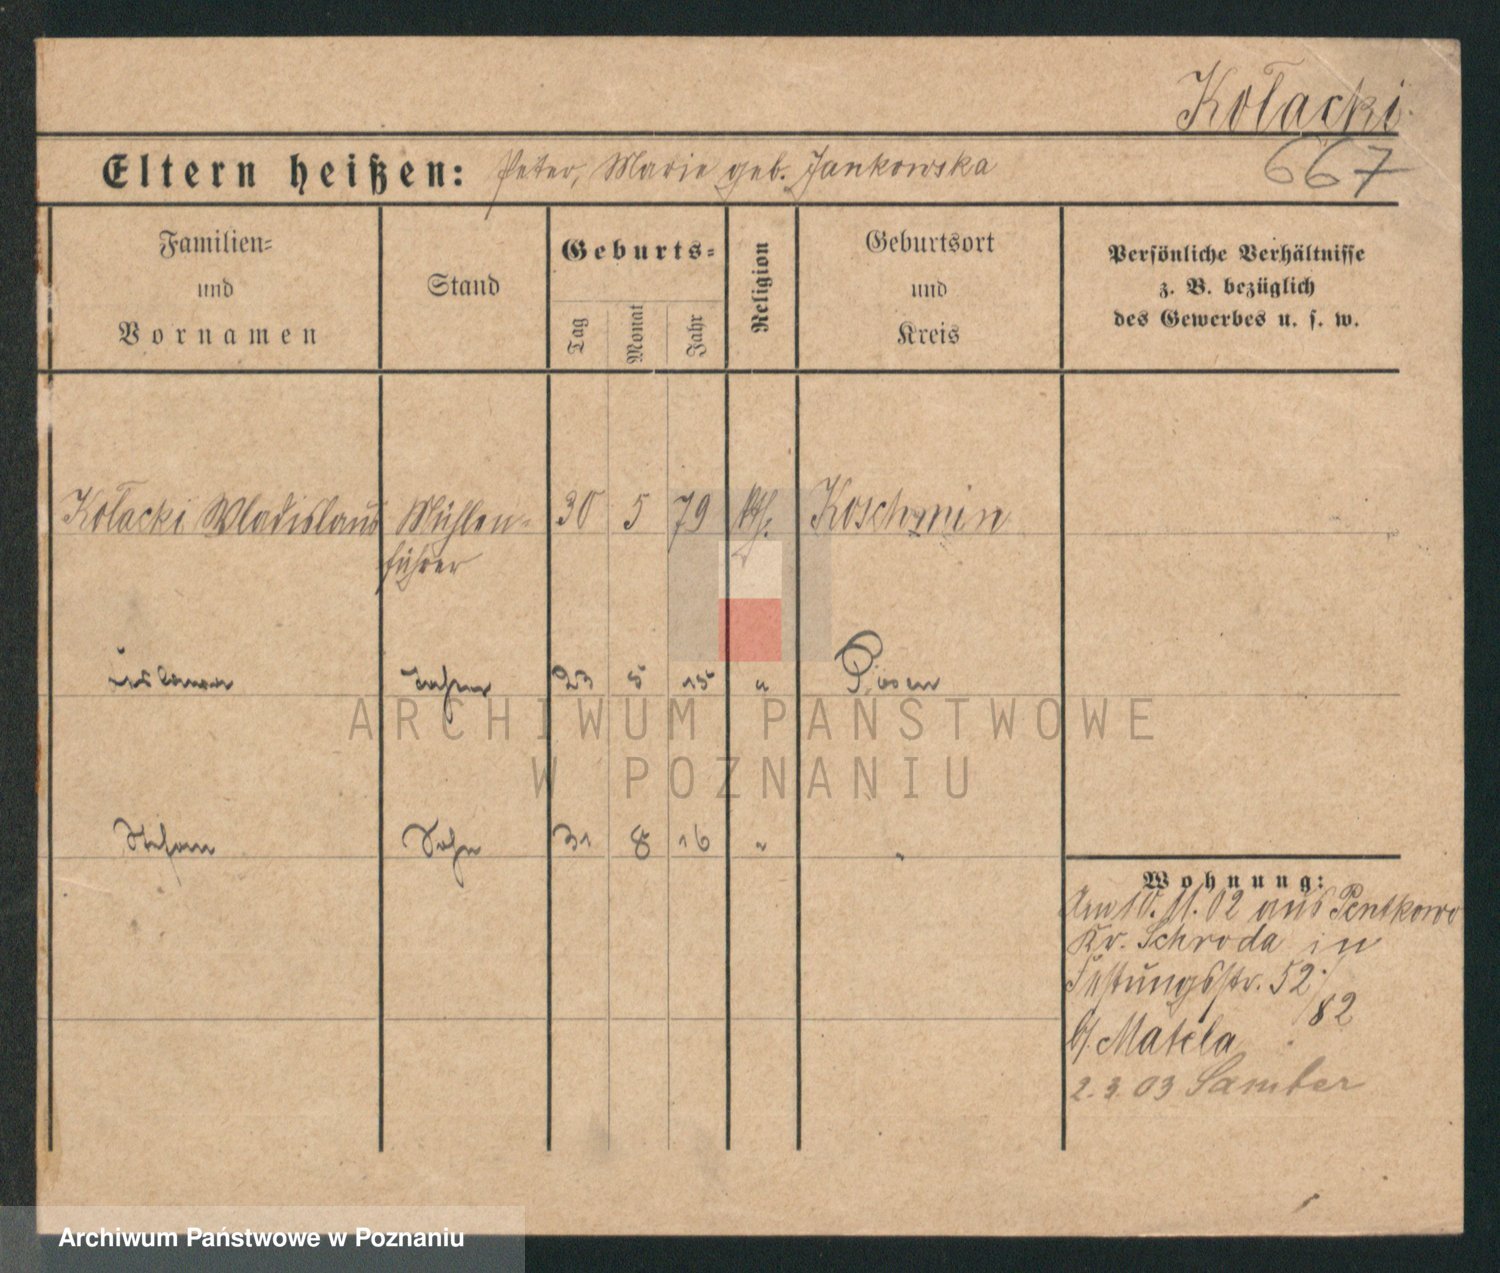 Kołacki
667
Eltern heißen: Peter, Marie geb. Jankowska
Familien=
und
Vornamen
Stand
Geburts=
Tag
Monat
Jahr
Religion
Geburtsort
und
Kreis
Persönliche Verhältnisse
z. B. bezüglich
des Gewerbes u. s. w.
Kołacki Wladislaus Mühlen= 30 5 79 kth. Koschmin
führer
23 5 15 " Posen
Stefan Sohn 31 8 16 " "
Wohnung:
Am 10.11.02 aus Pentkowo
Kr. Schroda in
Festungsstr. 52/
82
b/ Matela
2.3.03 Samter
ARCHIWUM PAŃSTWOWE
W POZNANIU
Archiwum Państwowe w Poznaniu